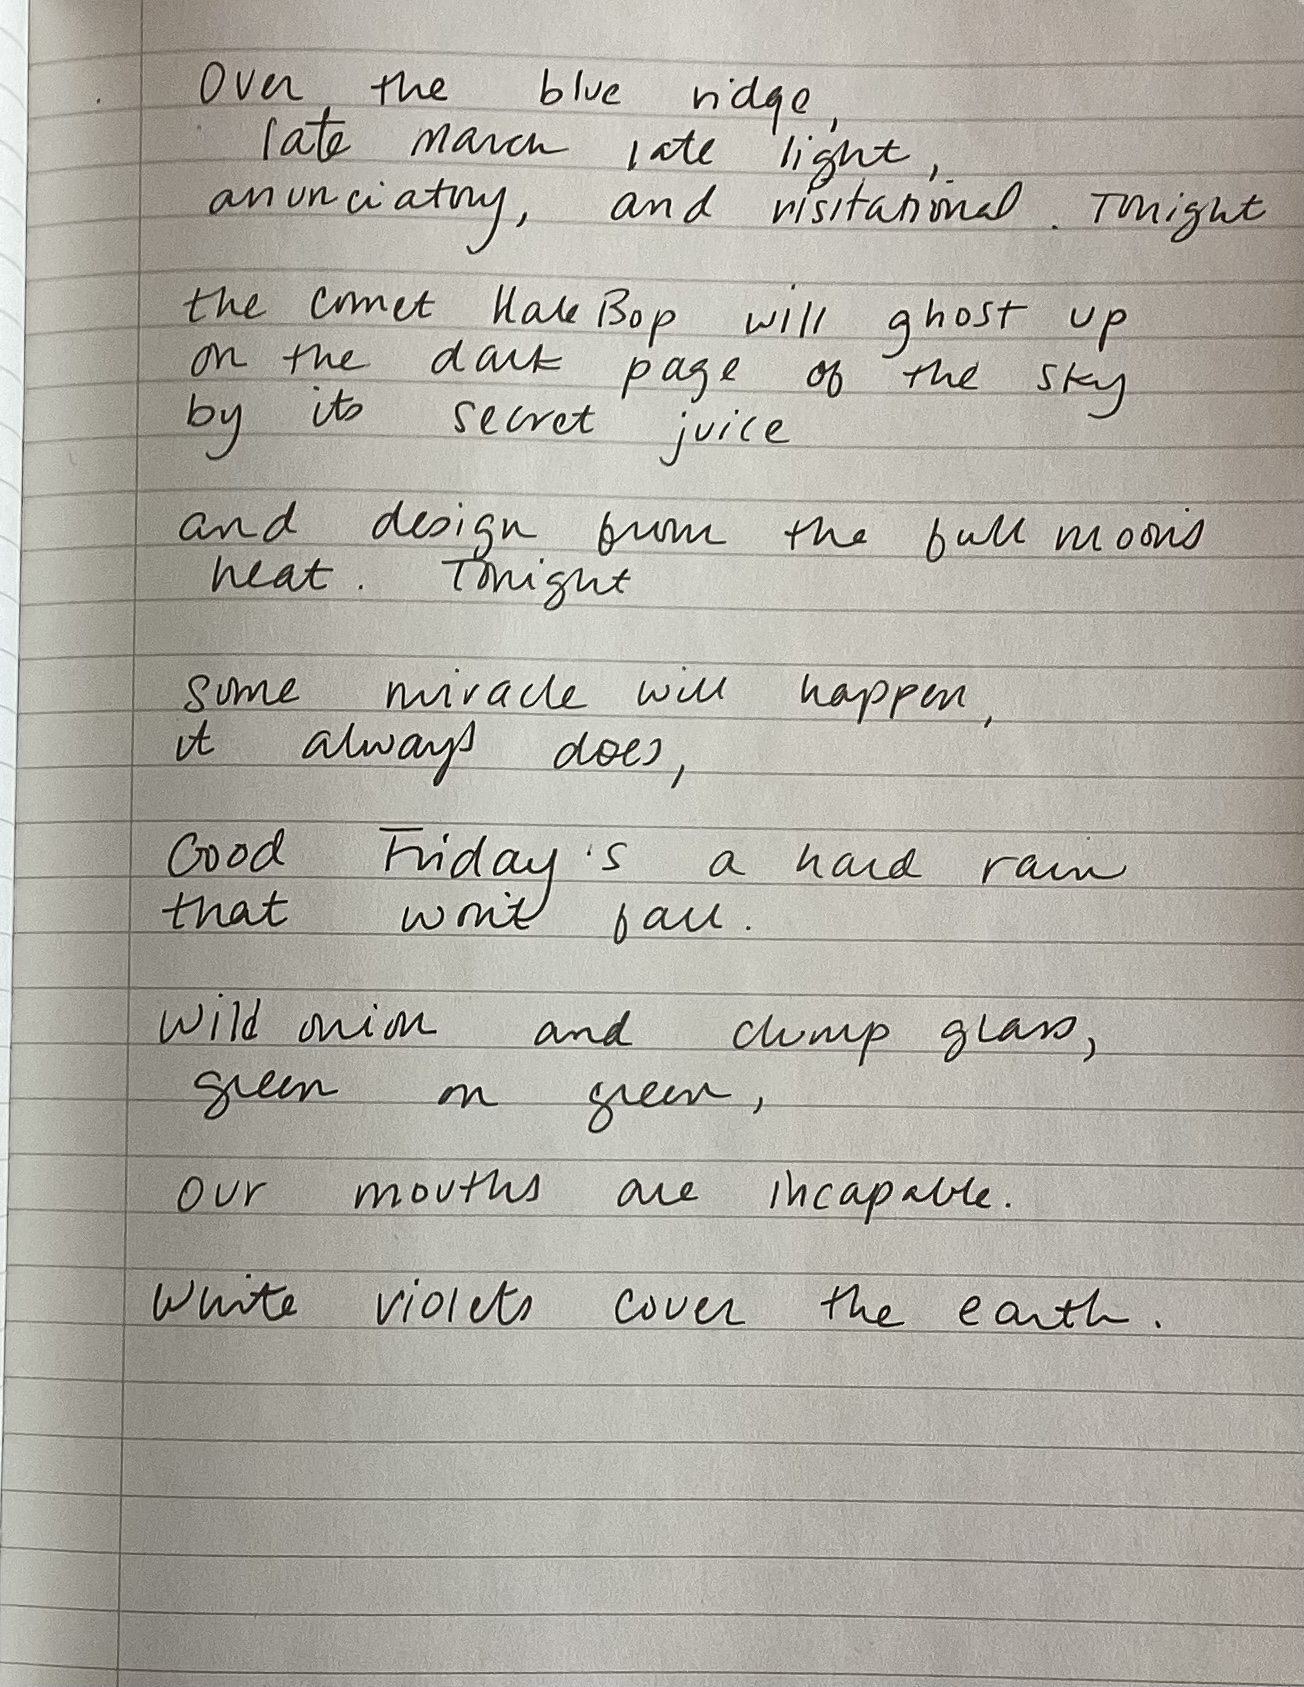 Over the blue ridge,
late march late light,
anunciatory, and visitational. Tonight
the comet Hale Bop will ghost up
on the dark page of the sky
by its secret juice
and design from the full moon's
heat. Tonight
some miracle will happen,
it always does,
Good Friday's a hard rain
that won't fall.
Wild onion and clump glass,
green on green,
Our mouths are incapable.
White violets cover the earth.